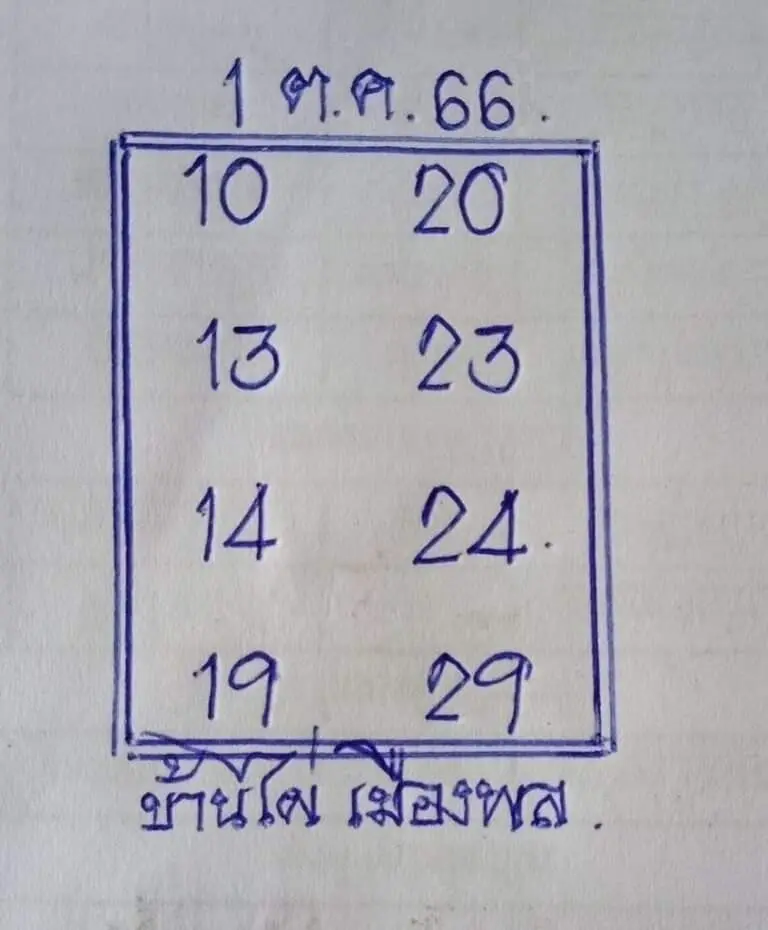 1 ต.ค. 66.
10 20
13 23
14 24.
19 29
บ้านไผ่ เมืองพล.